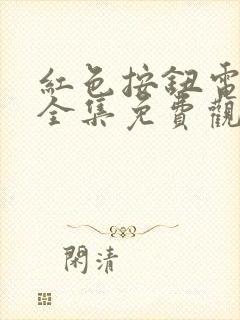 紅色按鈕電
全集免費觀
閑清